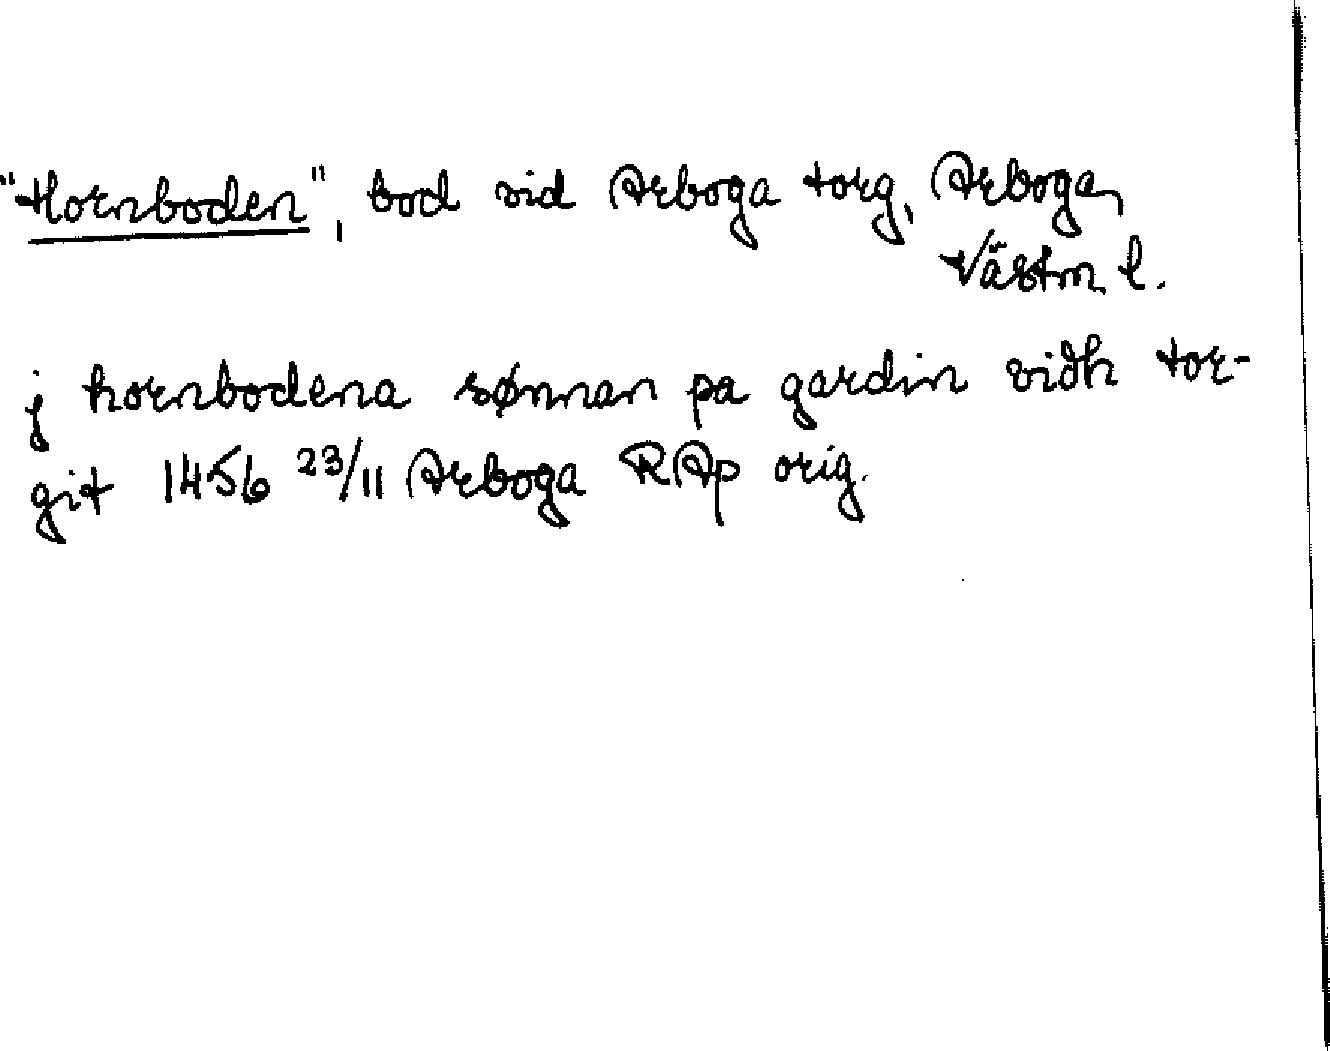 "Hornboden", bod vid Arboga torg, Arboga,
Västm l.
j hornbodena sønnan pa gardin vidh tor-
git 1456 23/11 Arboga RAp orig.